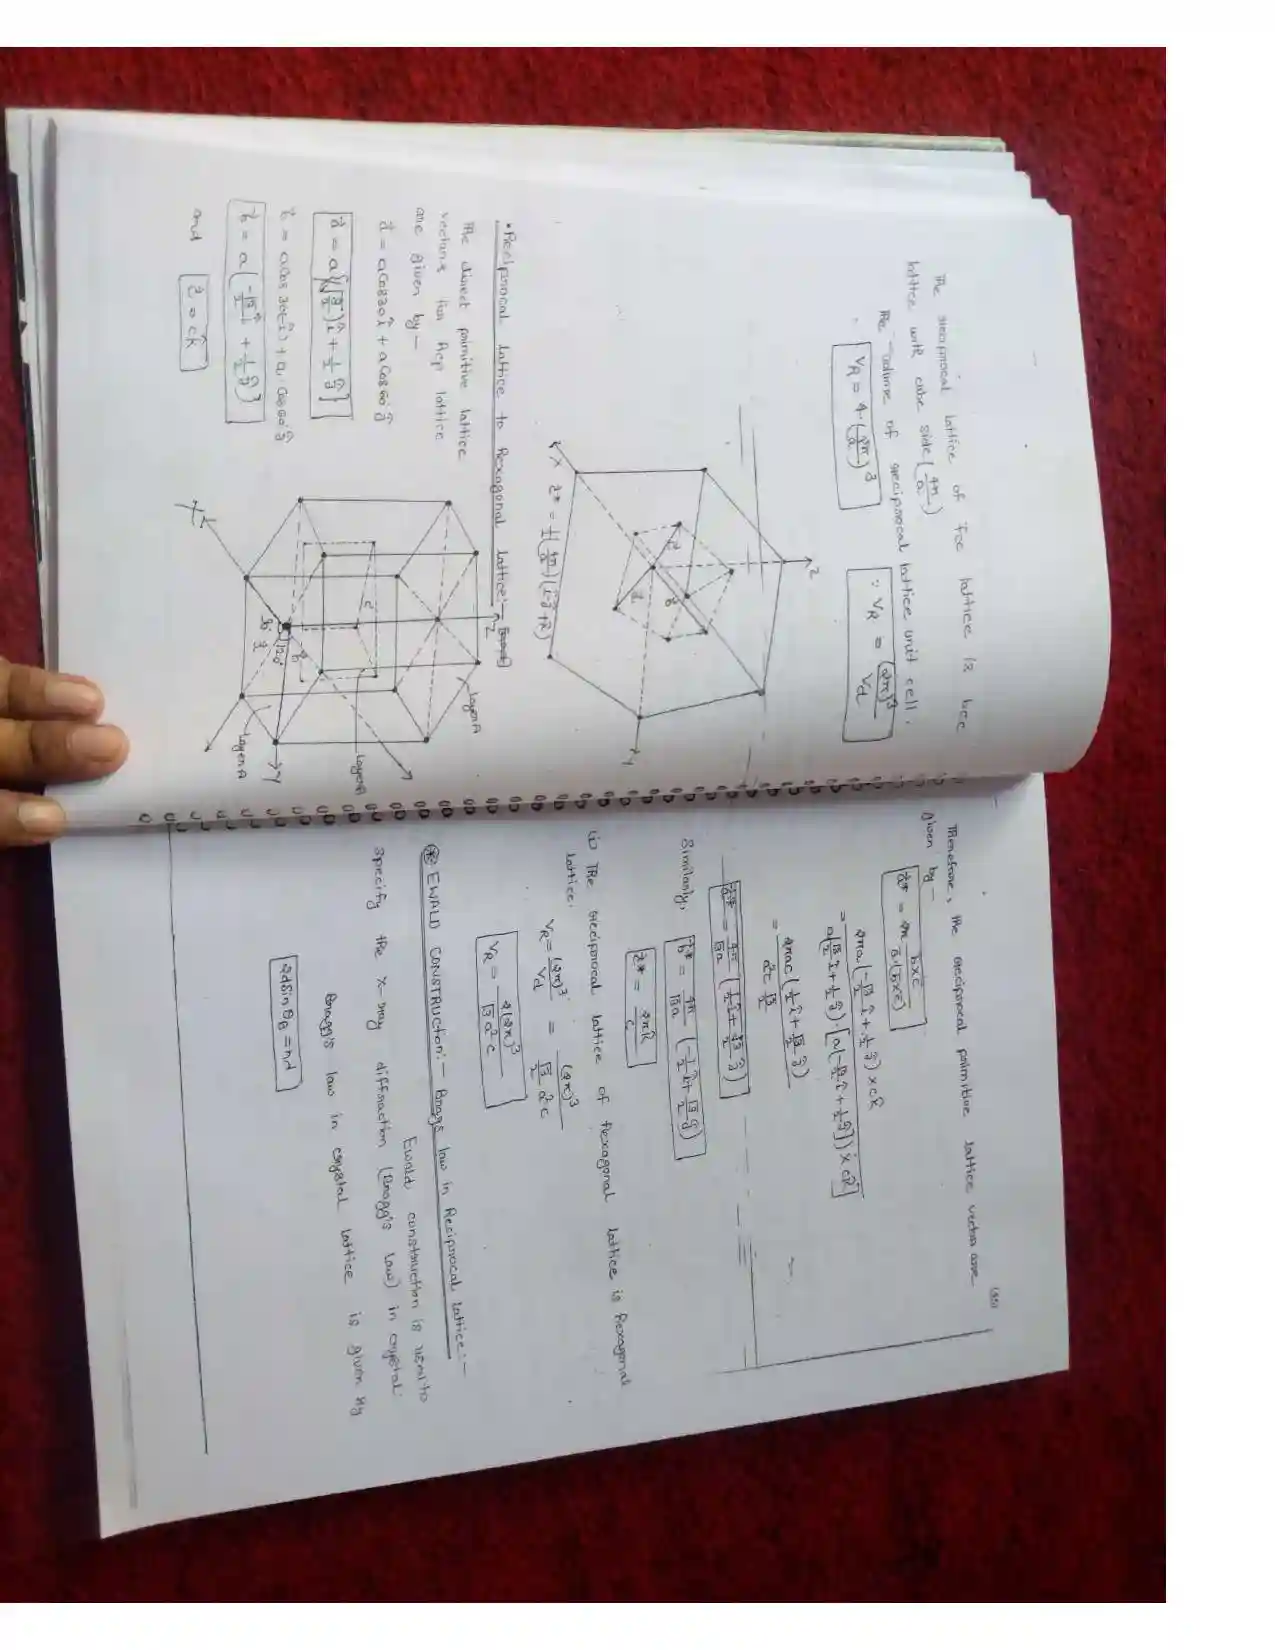 The reciprocal lattice of fcc lattice is bcc
lattice with cube side (4π/a)
The volume of reciprocal lattice unit cell.
V_R = 4·(2π/a)³
∵ V_R = (2π)³/V_d
Z
Y
X
c⃗* = ½(4π/a)(î-ĵ+k̂)
• Reciprocal lattice to Hexagonal lattice:-
The direct primitive lattice
vectors for hcp lattice
are given by —
a⃗ = a cos30 î + a cos60 ĵ
a⃗ = a[(√3/2)î + ½ĵ]
b⃗ = a cos 30(-î) + a cos60 ĵ
b⃗ = a(-√3/2 î + ½ĵ]
and c⃗ = ck̂
Z
Layer A
Layer B
Layer A
Y
X
120°
c
b
Therefore, the reciprocal primitive lattice vector are
given by —
a⃗* = 2π b×c/a·(b×c)
= 2πa(-√3/2 î + ½ĵ) × ck̂ / a(√3/2 î + ½ĵ)·[a(-√3/2 î + ½ĵ]) × ck̂]
= 2πac(½î + √3/2 ĵ) / a²c √3/2
a⃗* = 4π/√3a (½î + √3/2 ĵ)
Similarly, b⃗* = 4π/√3a (-½î + √3/2 ĵ)
c⃗* = 2πk̂/c
(i) The reciprocal lattice of hexagonal lattice is hexagonal
lattice.
V_R = (2π)³/V_d = (2π)³ / √3/2 a²c
V_R = 2(2π)³/√3a²c
⊛ EWALD CONSTRUCTION:- Braggs law in Reciprocal lattice:-
Ewald construction is used to
specify the X-ray diffraction (Bragg's law) in crystal.
Bragg's law in crystal lattice is given by
2dsinθ_B = nλ